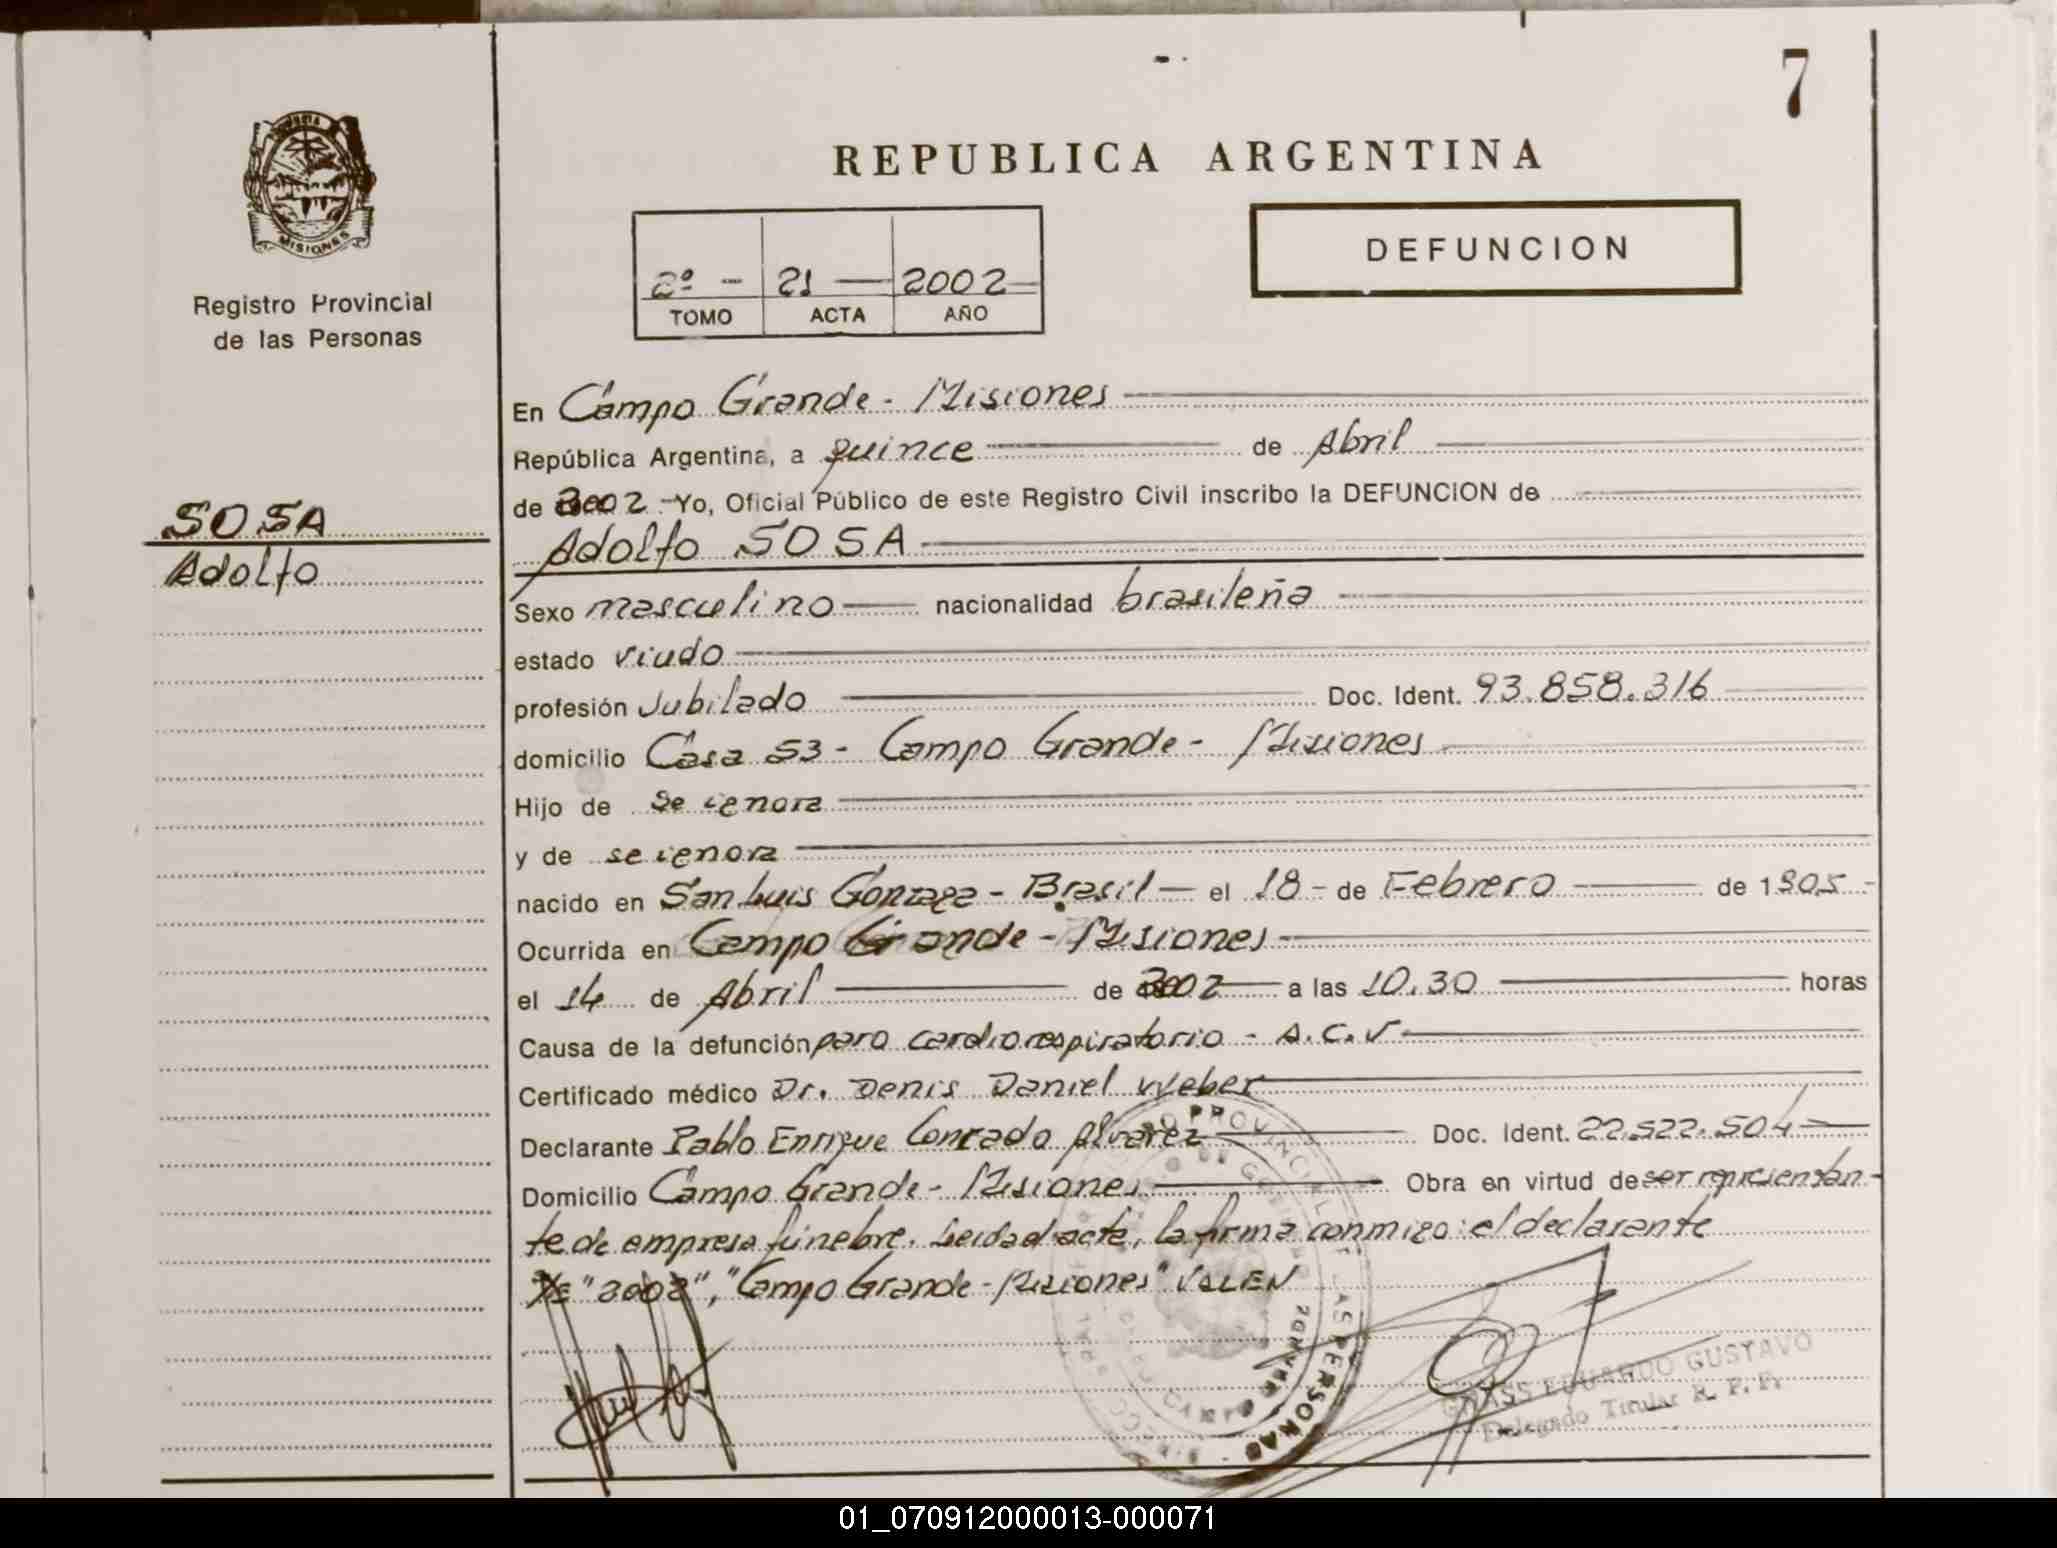 7
MISIONES
Registro Provincial
de las Personas
REPUBLICA ARGENTINA
DEFUNCION
2º - 21 — 2002
TOMO ACTA AÑO
En Campo Grande - Misiones
República Argentina, a quince de Abril
de 2002 - Yo, Oficial Público de este Registro Civil inscribo la DEFUNCION de
SOSA
Adolfo
Adolfo SOSA
Sexo masculino nacionalidad brasileña
estado viudo
profesión Jubilado Doc. Ident. 93.858.316
domicilio Casa 53 - Campo Grande - Misiones
Hijo de se ignora
y de se ignora
nacido en San Luis Gonzaga - Brasil - el 18 - de Febrero de 1905 -
Ocurrida en Campo Grande - Misiones
el 14 de Abril de 2002 a las 10.30 horas
Causa de la defunción paro cardiorespiratorio - A.C.V
Certificado médico Dr. Denis Daniel Weber
Declarante Pablo Enrique Conrado Alvarez Doc. Ident. 22.522.504
Domicilio Campo Grande - Misiones Obra en virtud de ser representan-
te de empresa fúnebre. Leida el acta, la firma conmigo: el declarante
"2002", "Campo Grande - Misiones" VALEN
PROVINCIAL
LAS PERSONAS
EDUARDO GUSTAVO
Delegado Titular R. P. P.
01_070912000013-000071